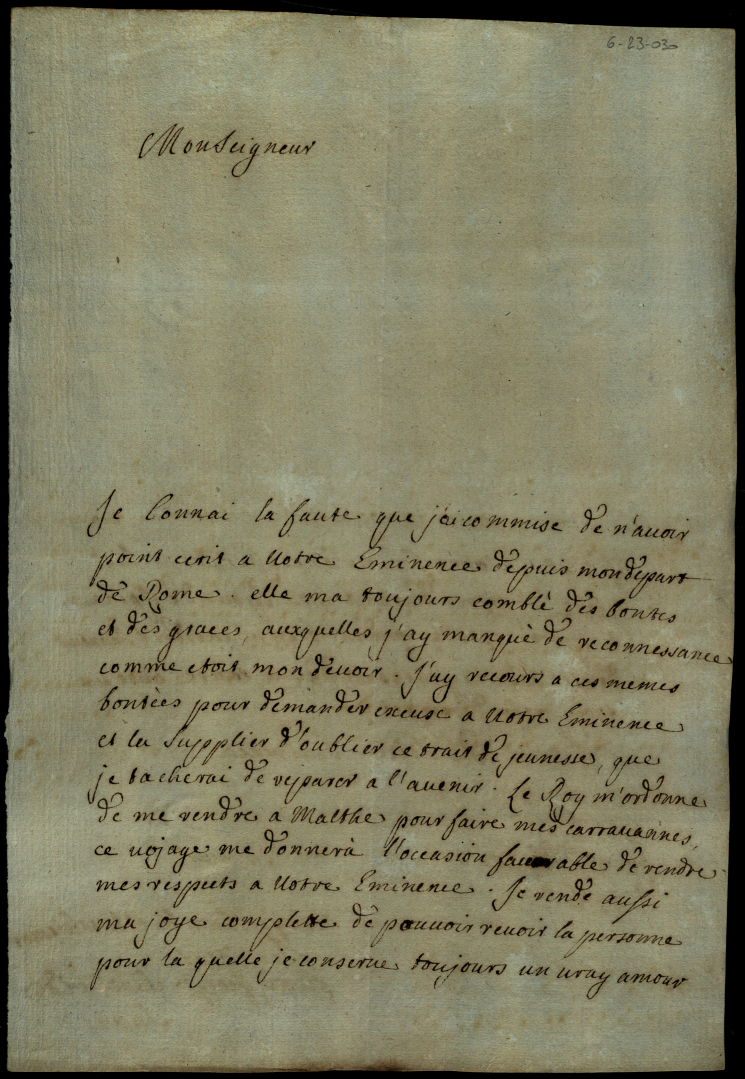 6-23-030
Monseigneur
Je Connai la faute que j'ai commise de n'avoir
point ecrit a Votre Eminence depuis mon depart
de Rome. elle ma toujours comblè des bontes
et des graces, auxquelles j'ay manquè de reconnessance
comme etoit mon devoir. J'ay recours a ces memes
bontèes pour demander excuse a Votre Eminence
et la Supplier d'oublier ce trait de jeunesse, que
je tacherai de reparer a l'avenir. Le Roy m'ordonne
de me rendre a Malthe pour faire mes carravannes,
ce vojage me donnerà l'occasion favorable de rendre
mes respects a Votre Eminence. Je rende aussi
ma joye complette de pouvoir revoir la personne
pour la quelle je conserve toujours un vray amour